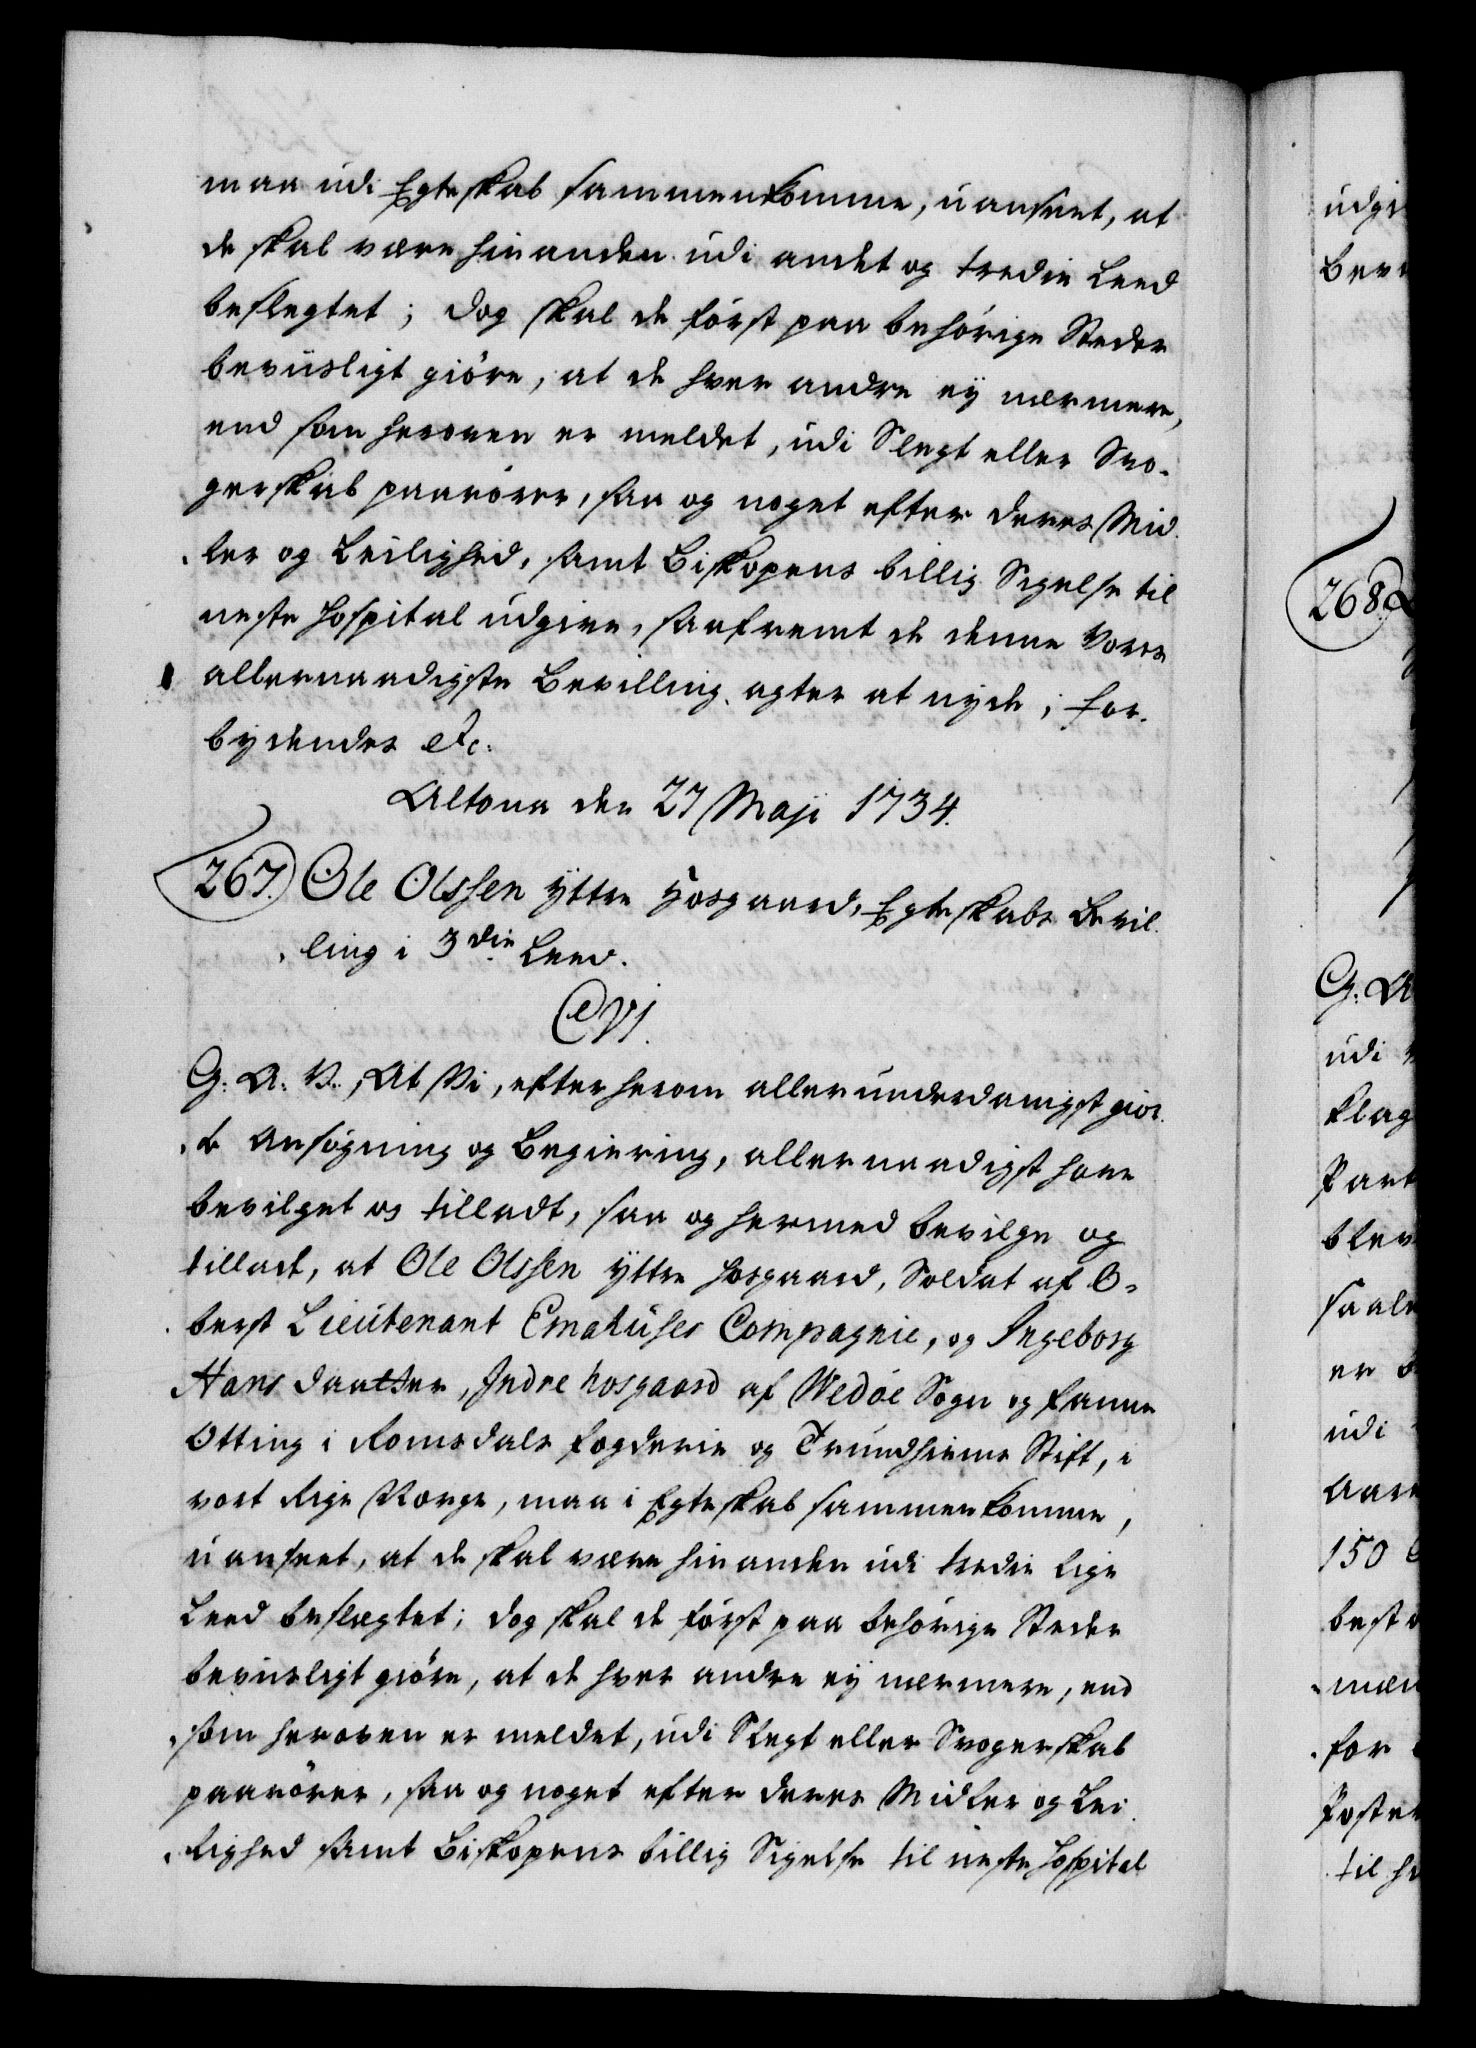 maa udi Egteskab sammenkomme, uanseet, at
de skal være hinanden udi andet og tredie Leed
beslegtet; dog skal de först paa behörige Steder
beviisligt giöre, at de hver andre ej nærmere,
end som heroven er meldet, udi Slegt eller Svo-
gerskab paarörer, saa og noget efter deres Mid-
ler og Leilighed, samt Biskopens billig Sigelse til
neste Hospital udgive, saafremt de denne Vores
allernaadigste Bevilling agter at nyde; For-
bydendes etc:
Altona den 27 Maji 1734.
267. Ole Olssen Yttre Hosgaard, Egteskabs Bevil-
ling i 3die Leed.
C VI.
G: A: V., At Vi, efter herom allerunderdanigst gior-
te Ansøgning og Begiering, allernaadigst have
bevilget og tilladt, saa og hermed bevilge og
tillade, at Ole Olssen Yttre Hosgaard, Soldat af O-
berst Lieutenant Emahuses Compagnie, og Ingeborg
Hans daatter, Indre hosgaard af Wedøe Sogn og Fanne
Otting i Romsdals Fogderie og Trundhiems Stift, i
vort Rige Norge, maa i Egteskab sammenkomme,
uanseet, at de skal være hinanden udi tredie lige
Leed beslægtet; dog skal de först paa behörige Steder
beviisligt giöre, at de hver andre ej nærmere, end
som heroven er meldet, udi Slegt eller Svogerskab
paarörer, saa og noget efter deres Midler og Lei-
lighed samt Biskopens billig Sigelse til neste Hospital
udgi
Bevi
268.
G: A
udi
Klag
Part
blev
saale
er
udi
Aar
150
best
mæn
for
Poster
til h